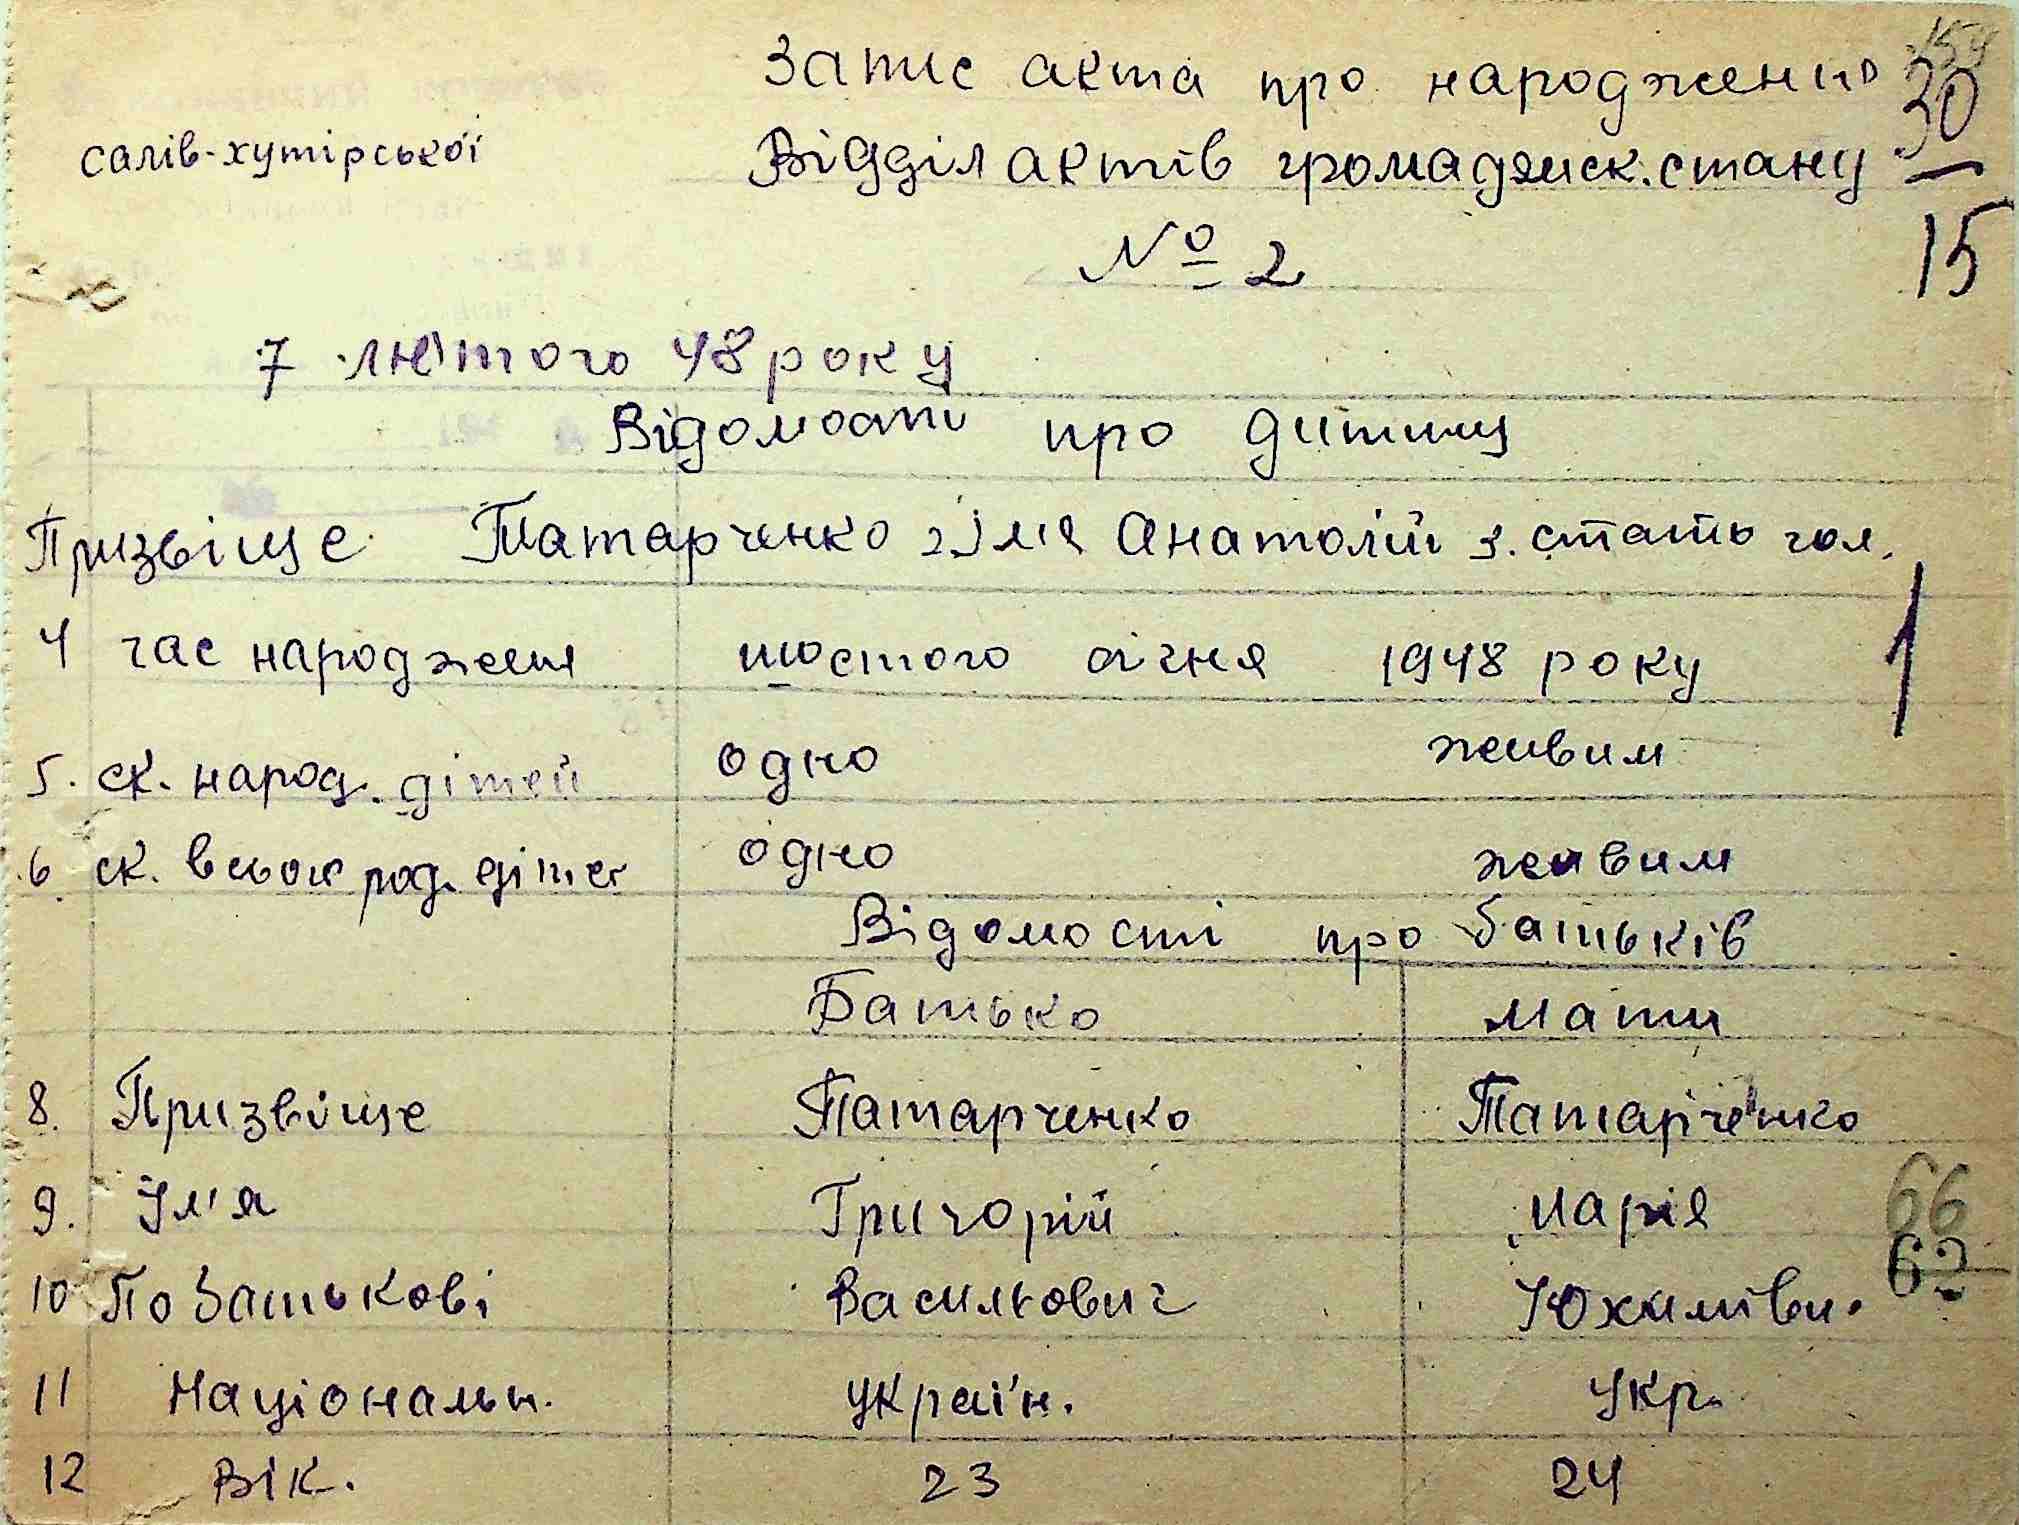 Запис акта про народження
салів-хутірської
Відділ актів громадянск. стану
30
15
№ 2
7 лютого 48 року
Відомости про дитину
Призвіще Татарченко 2 Імя Анатолій 3. стать чол.
4 час народження шостого січня 1948 року
1
5. ск. народ. дітей одно живим
6 ск. всього род. дітей одно живим
Відомості про батьків
Батько мати
8. Призвіще Татарченко Татарченко
9. Ім'я Григорій марія
66
62
10 По батькові Васильович Юхимівн.
11 Національн. україн. укр.
12 вік. 23 24